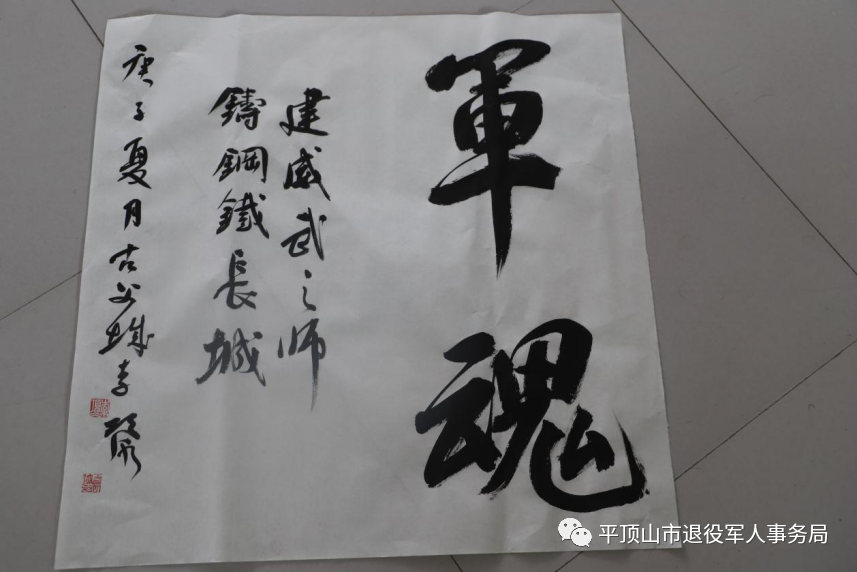 軍魂
建威武之师
鑄鋼鐵長城
庚子夏月古父城李
平顶山市退役军人事务局